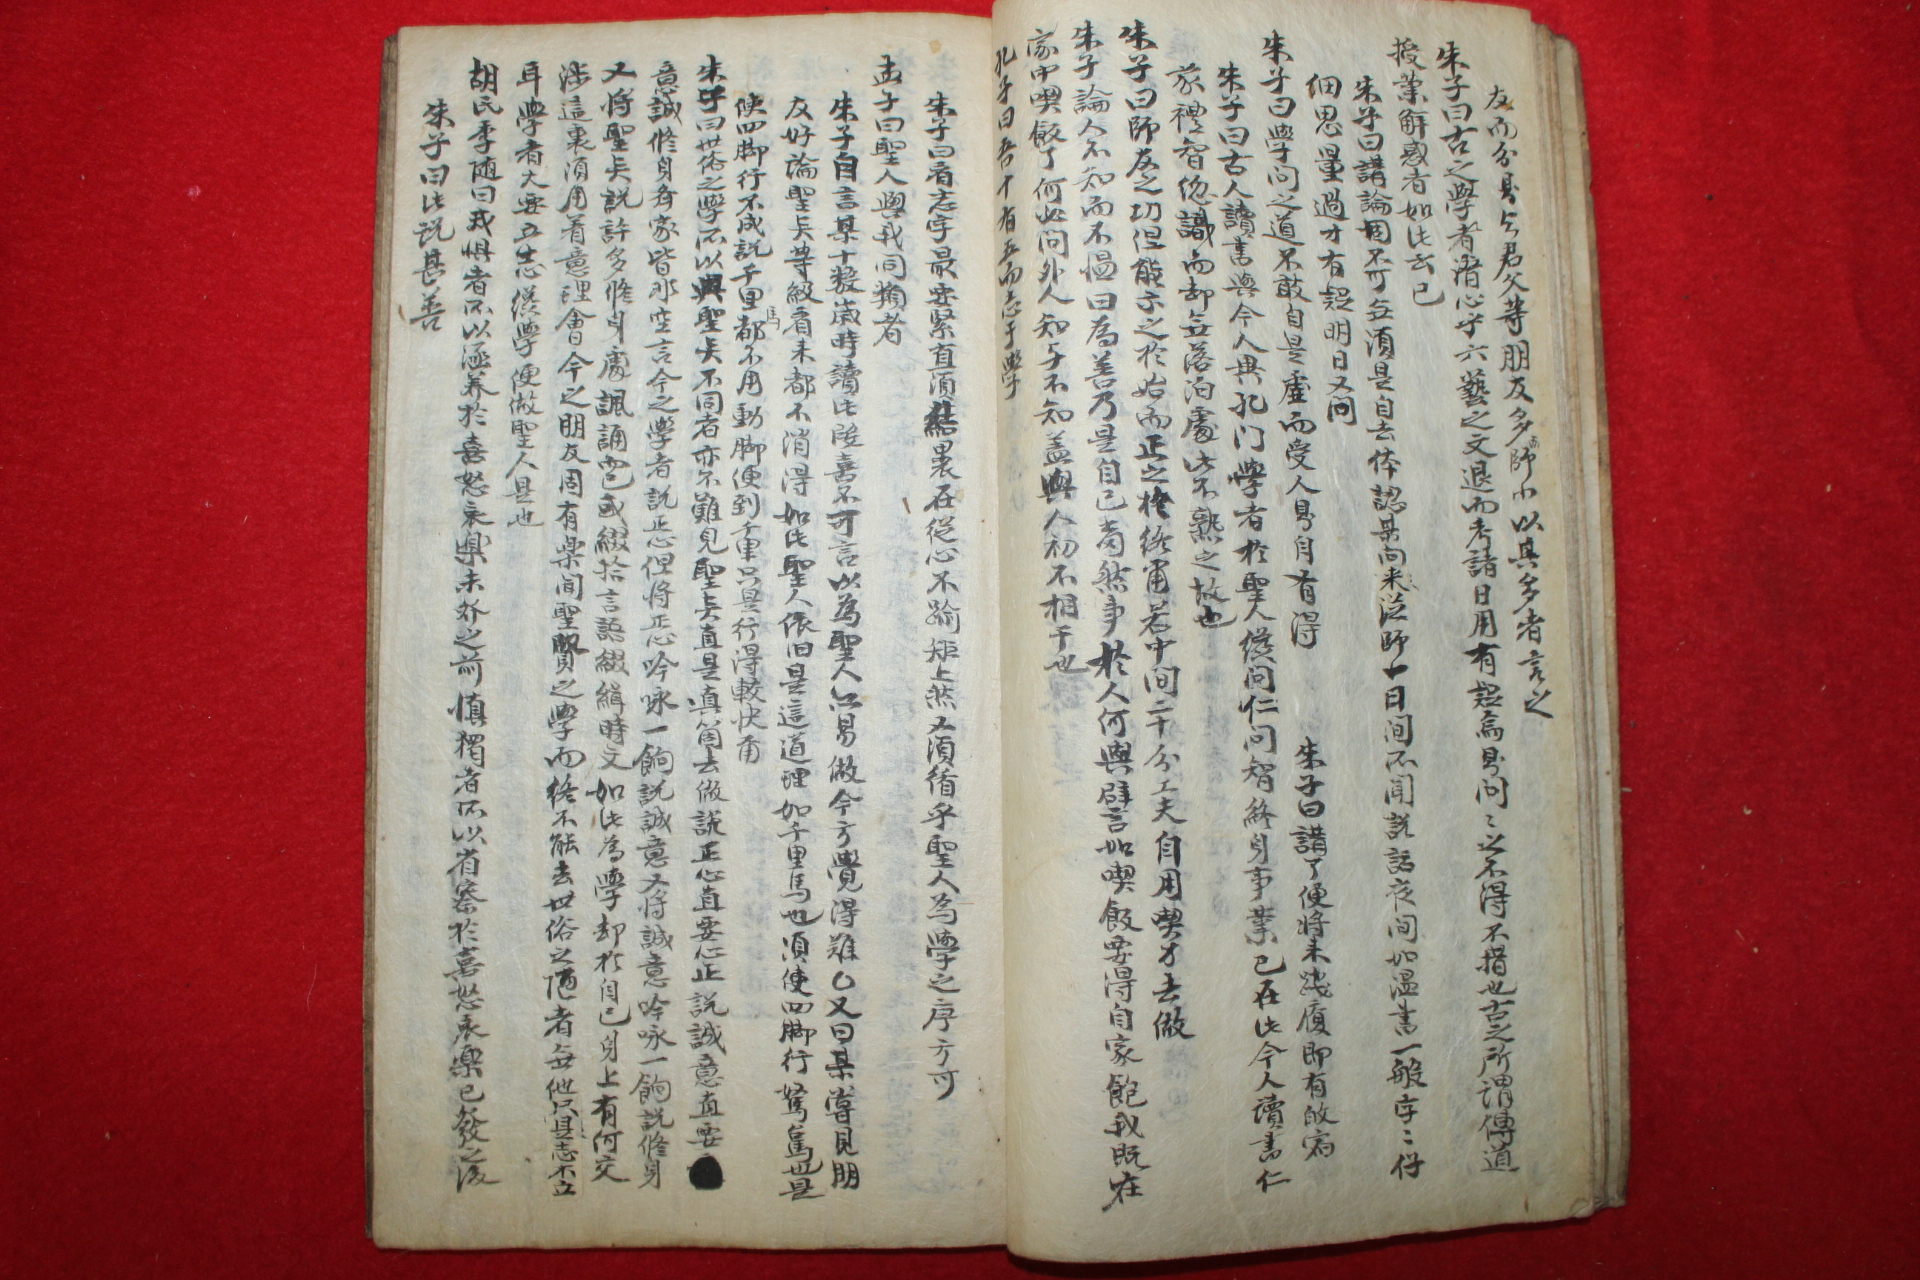 友而分㝵与君父等朋友多而師小以其多者言之
朱子曰古之學者潜心乎六藝之文退而考諸日用有疑焉㝵問〻之不得不措也古之所謂傳道
授業解惑者如此而已
朱子曰講論固不可無須是自去体認某向來從師一日間所聞說話夜間如温書一般字〻仔
細思量過才有疑明日又問
朱子曰學問之道不敢自是虛而受人㝵自有得
朱子曰講了便將來踐履即有
朱子曰古人讀書與今人異孔门學者於聖人縂問仁問智終身事業已在此今人讀書仁
義禮智緫識而却無落泊處此不熟之故也
朱子曰師友之功但能示之於始而正之於終甭若中间二十分工夫自用喫力去做
朱子論人不知而不愠曰為善乃是自己當然事於人何與譬言如喫飯要得自家飽我既在
家中喫飯了何必问外人知与不知盖與人初不相干也
孔子曰吾十有五而志于學
朱子曰看志字最要緊直須結裹在從心不踰矩上然又須循乎聖人為學之序方可
孟子曰聖人與我同類者
朱子自言某十数歳時讀此段喜不可言以為聖人亦易做今方覺得難乚又曰某嘗見朋
友好論聖矣等級看来都不消得如此聖人依旧是這道理如千里馬也須使四脚行駑馬也是
使四脚行不成説千里馬都不用動脚便到千里只是行得較快甭
朱子曰世俗之學所以與聖矣不同者亦不難見聖矣直是真箇去做説正心直要心正説誠意直要
意誠修身齊家皆非空言今之學者説正心但將正心吟咏一餉説誠意又將誠意吟咏一餉説修身
又將聖矣説許多修身處諷誦而已或綴拾言語綴緝時文如此為學却於自己身上有何交
涉這裏須用着意理會今之朋友固有樂聞聖賢之學而終不能去世俗之陋者無他只是志不立
耳學者大要立志縂學便做聖人是也
胡氏季随曰戒惧者所以涵养於喜怒哀樂未發之前慎獨者所以省察於喜怒哀樂已發之後
朱子曰此説甚善